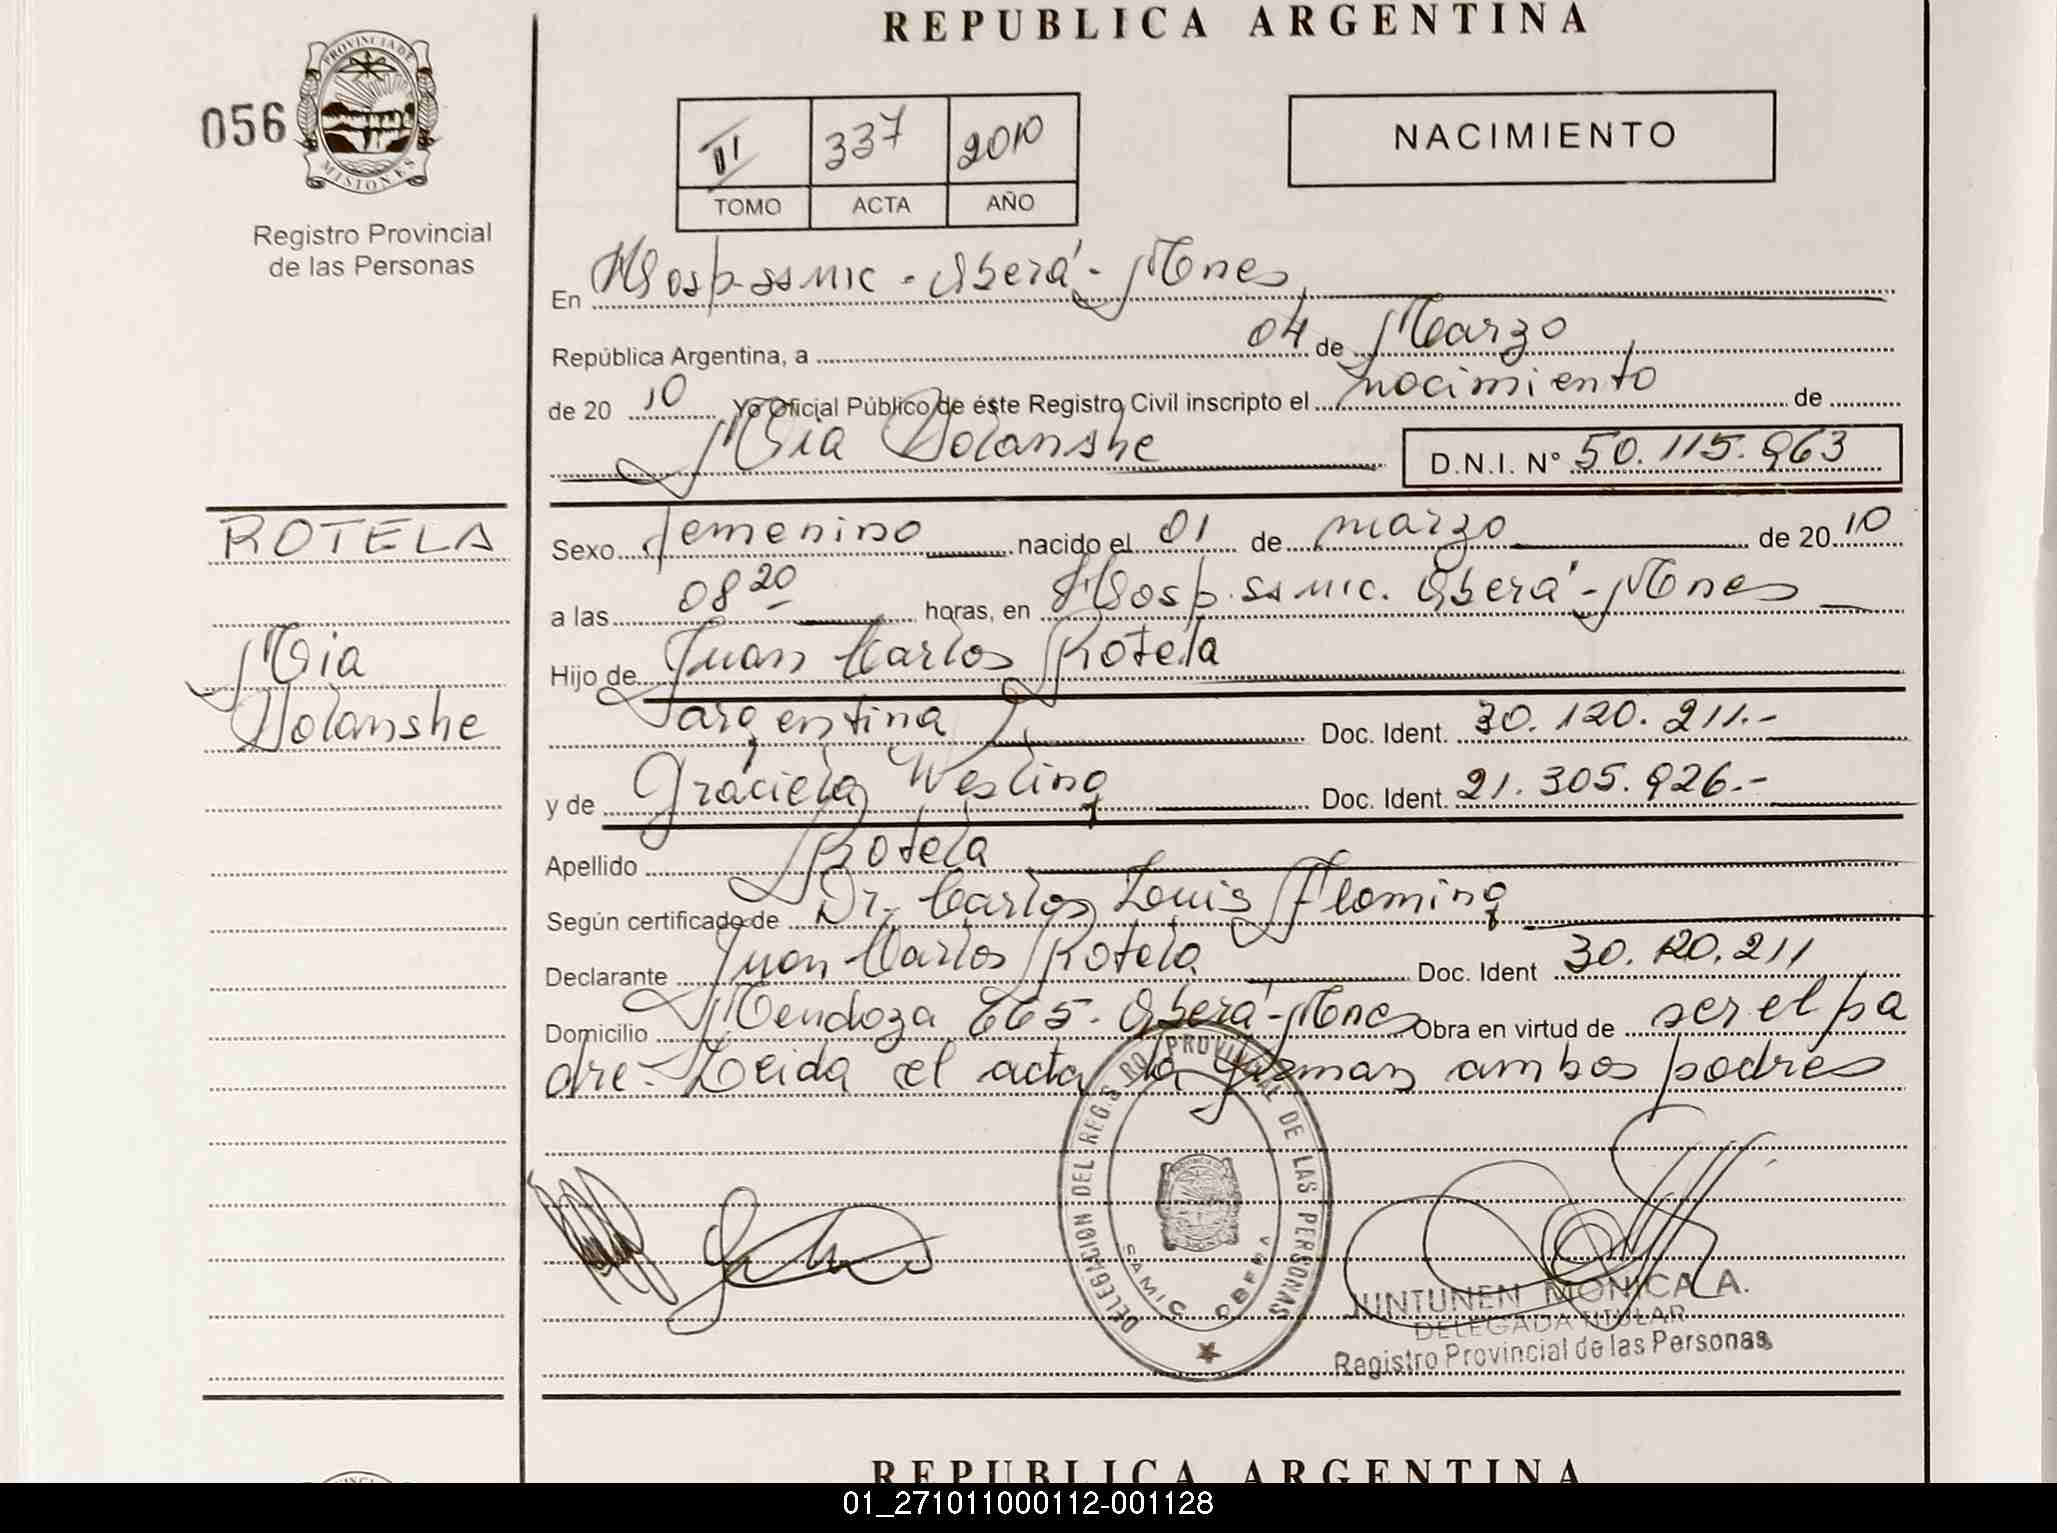 REPUBLICA ARGENTINA
056
PROVINCIA DE
MISIONES
Registro Provincial
de las Personas
III 337 2010
TOMO ACTA AÑO
NACIMIENTO
En Hosp. SAMIC - Oberá - Mnes
República Argentina, a 04 de Marzo
de 20 10 Yo Oficial Público de éste Registro Civil inscripto el nacimiento de
Mia D.N.I. Nº 50.115.963
ROTELA
Mia
Sexo femenino nacido el 01 de marzo de 20 10
a las 08 20 horas, en Hosp. SAMIC. Oberá - Mnes
Hijo de Juan Carlos Rotela
argentina Doc. Ident. 30.120.211.-
y de Graciela Wesling Doc. Ident. 21.305.926.-
Apellido Rotela
Según certificado de Dr. Carlos Louis Fleming
Declarante Juan Carlos Rotela Doc. Ident 30.120.211
Domicilio Mendoza 665 - Oberá - Mnes Obra en virtud de ser el pa
dre.- Leida el acta la firman ambos padres
DELEGACION DEL REGISTRO PROVINCIAL DE LAS PERSONAS
SAMIC OBERA
JUNTUNEN MONICA A.
DELEGADA TITULAR
Registro Provincial de las Personas
REPUBLICA ARGENTINA
01_271011000112-001128